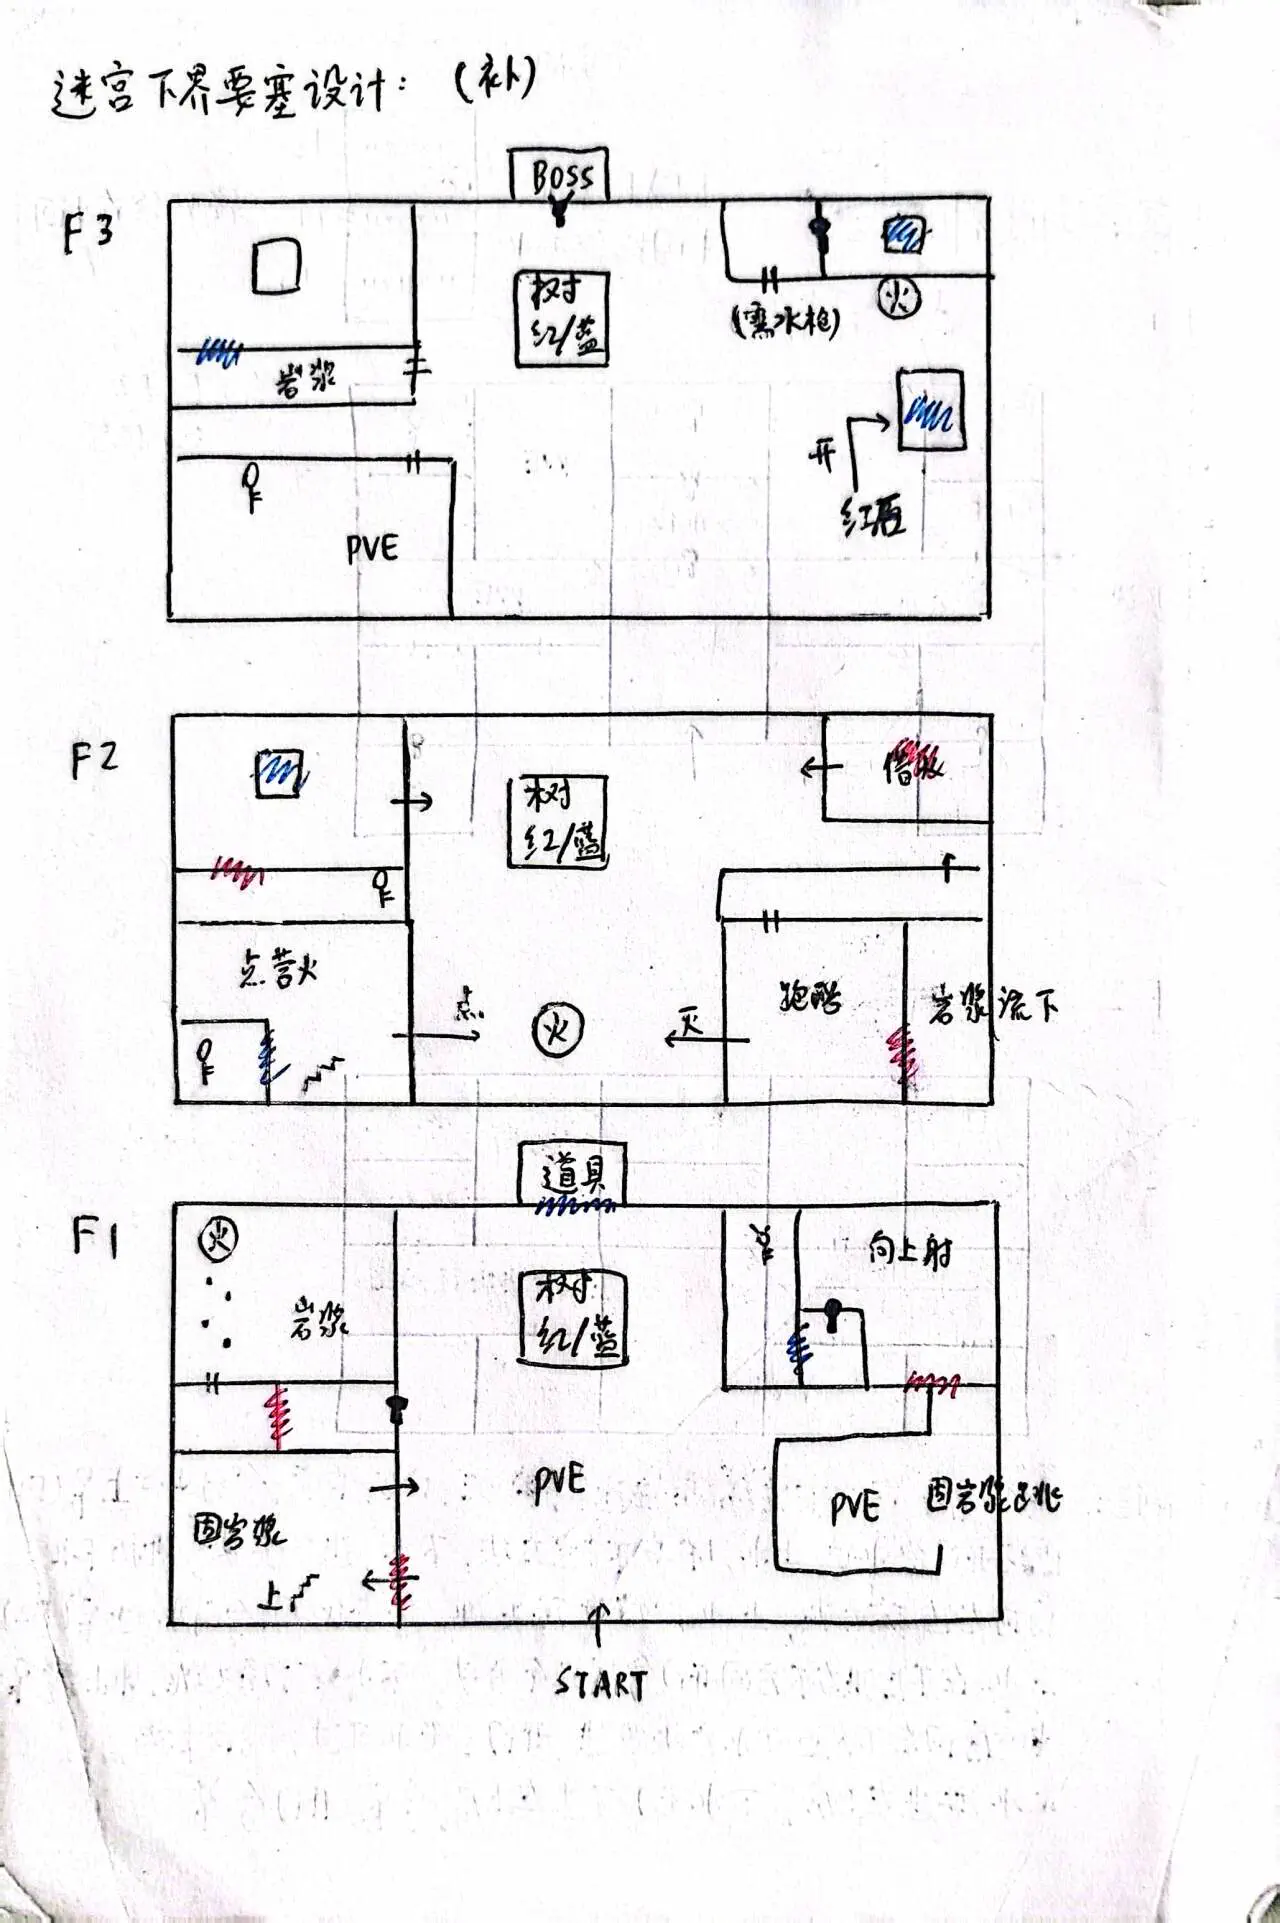 迷宫下界要塞设计：(补)
F3
BOSS
树
红/蓝
火
(需水枪)
岩浆
开
PVE
F2
树
红/蓝
点营火
点
火
灭
跑酷
岩浆流下
道具
F1
火
岩浆
树
红/蓝
向上射
PVE
PVE
固岩浆
固岩浆跳
上
START